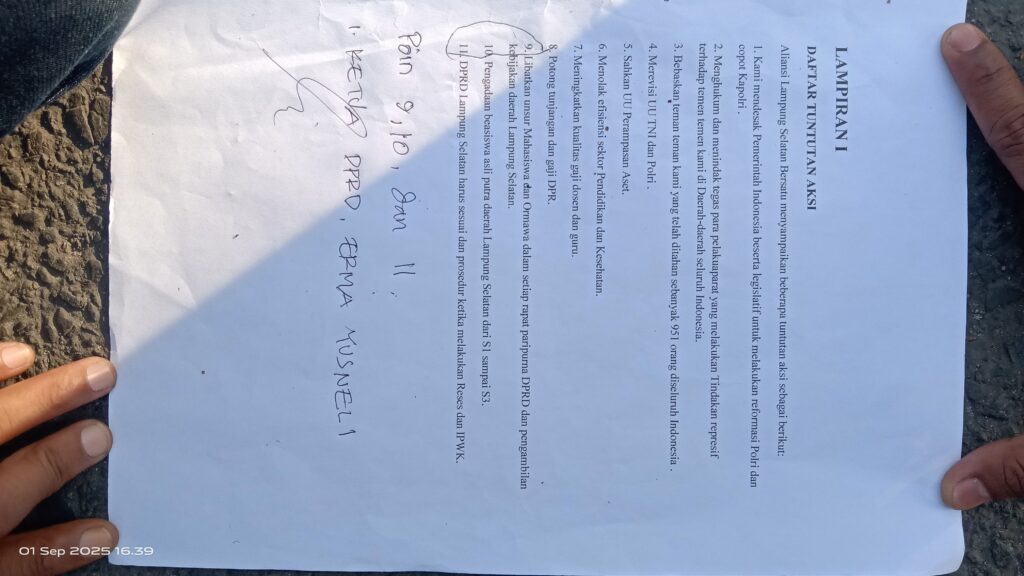 LAMPIRAN I
DAFTAR TUNTUTAN AKSI
Aliansi Lampung Selatan Bersatu menyampaikan beberapa tuntutan aksi sebagai berikut:
1. Kami mendesak Pemerintah Indonesia beserta legislatif untuk melakukan reformasi Polri dan
copot Kapolri .
2. Menghukum dan menindak tegas para pelakuaparat yang melakukan Tindakan represif
terhadap temen temen kami di Daerah-daerah seluruh Indonesia.
3. Bebaskan teman teman kami yang telah ditahan sebanyak 951 orang diseluruh Indonesia .
4. Merevisi UU TNI dan Polri .
5. Sahkan UU Perampasan Aset.
6. Menolak efisiensi sektor Pendidikan dan Kesehatan.
7. Meningkatkan kualitas gaji dosen dan guru.
8. Potong tunjangan dan gaji DPR.
9. Libatkan unsur Mahasiswa dan Ormawa dalam setiap rapat paripurna DPRD dan pengambilan
kebijakan daerah Lampung Selatan.
10. Pengadaan beasiswa asli putra daerah Lampung Selatan dari S1 sampai S3.
11. DPRD Lampung Selatan harus sesuai dan prosedur ketika melakukan Reses dan IPWK.
Poin 9, 10, dan 11,
1. KETUA DPRD, ERMA MUSNELI
01 Sep 2025 16.39